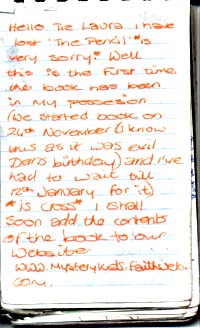 Hello I'z Laura i have
lost 'The Pencil' *is
very sorry* Well
this is the First time
the book has been
in My possesion
(we started book on
24th November (I know
this as it was evil
Dan's birthday) and I've
had to wait till
12th January for it)
*is cross* I shall
Soon add the contents
of the book to our
Website
www.Mysterykids.Faithweb.
com.